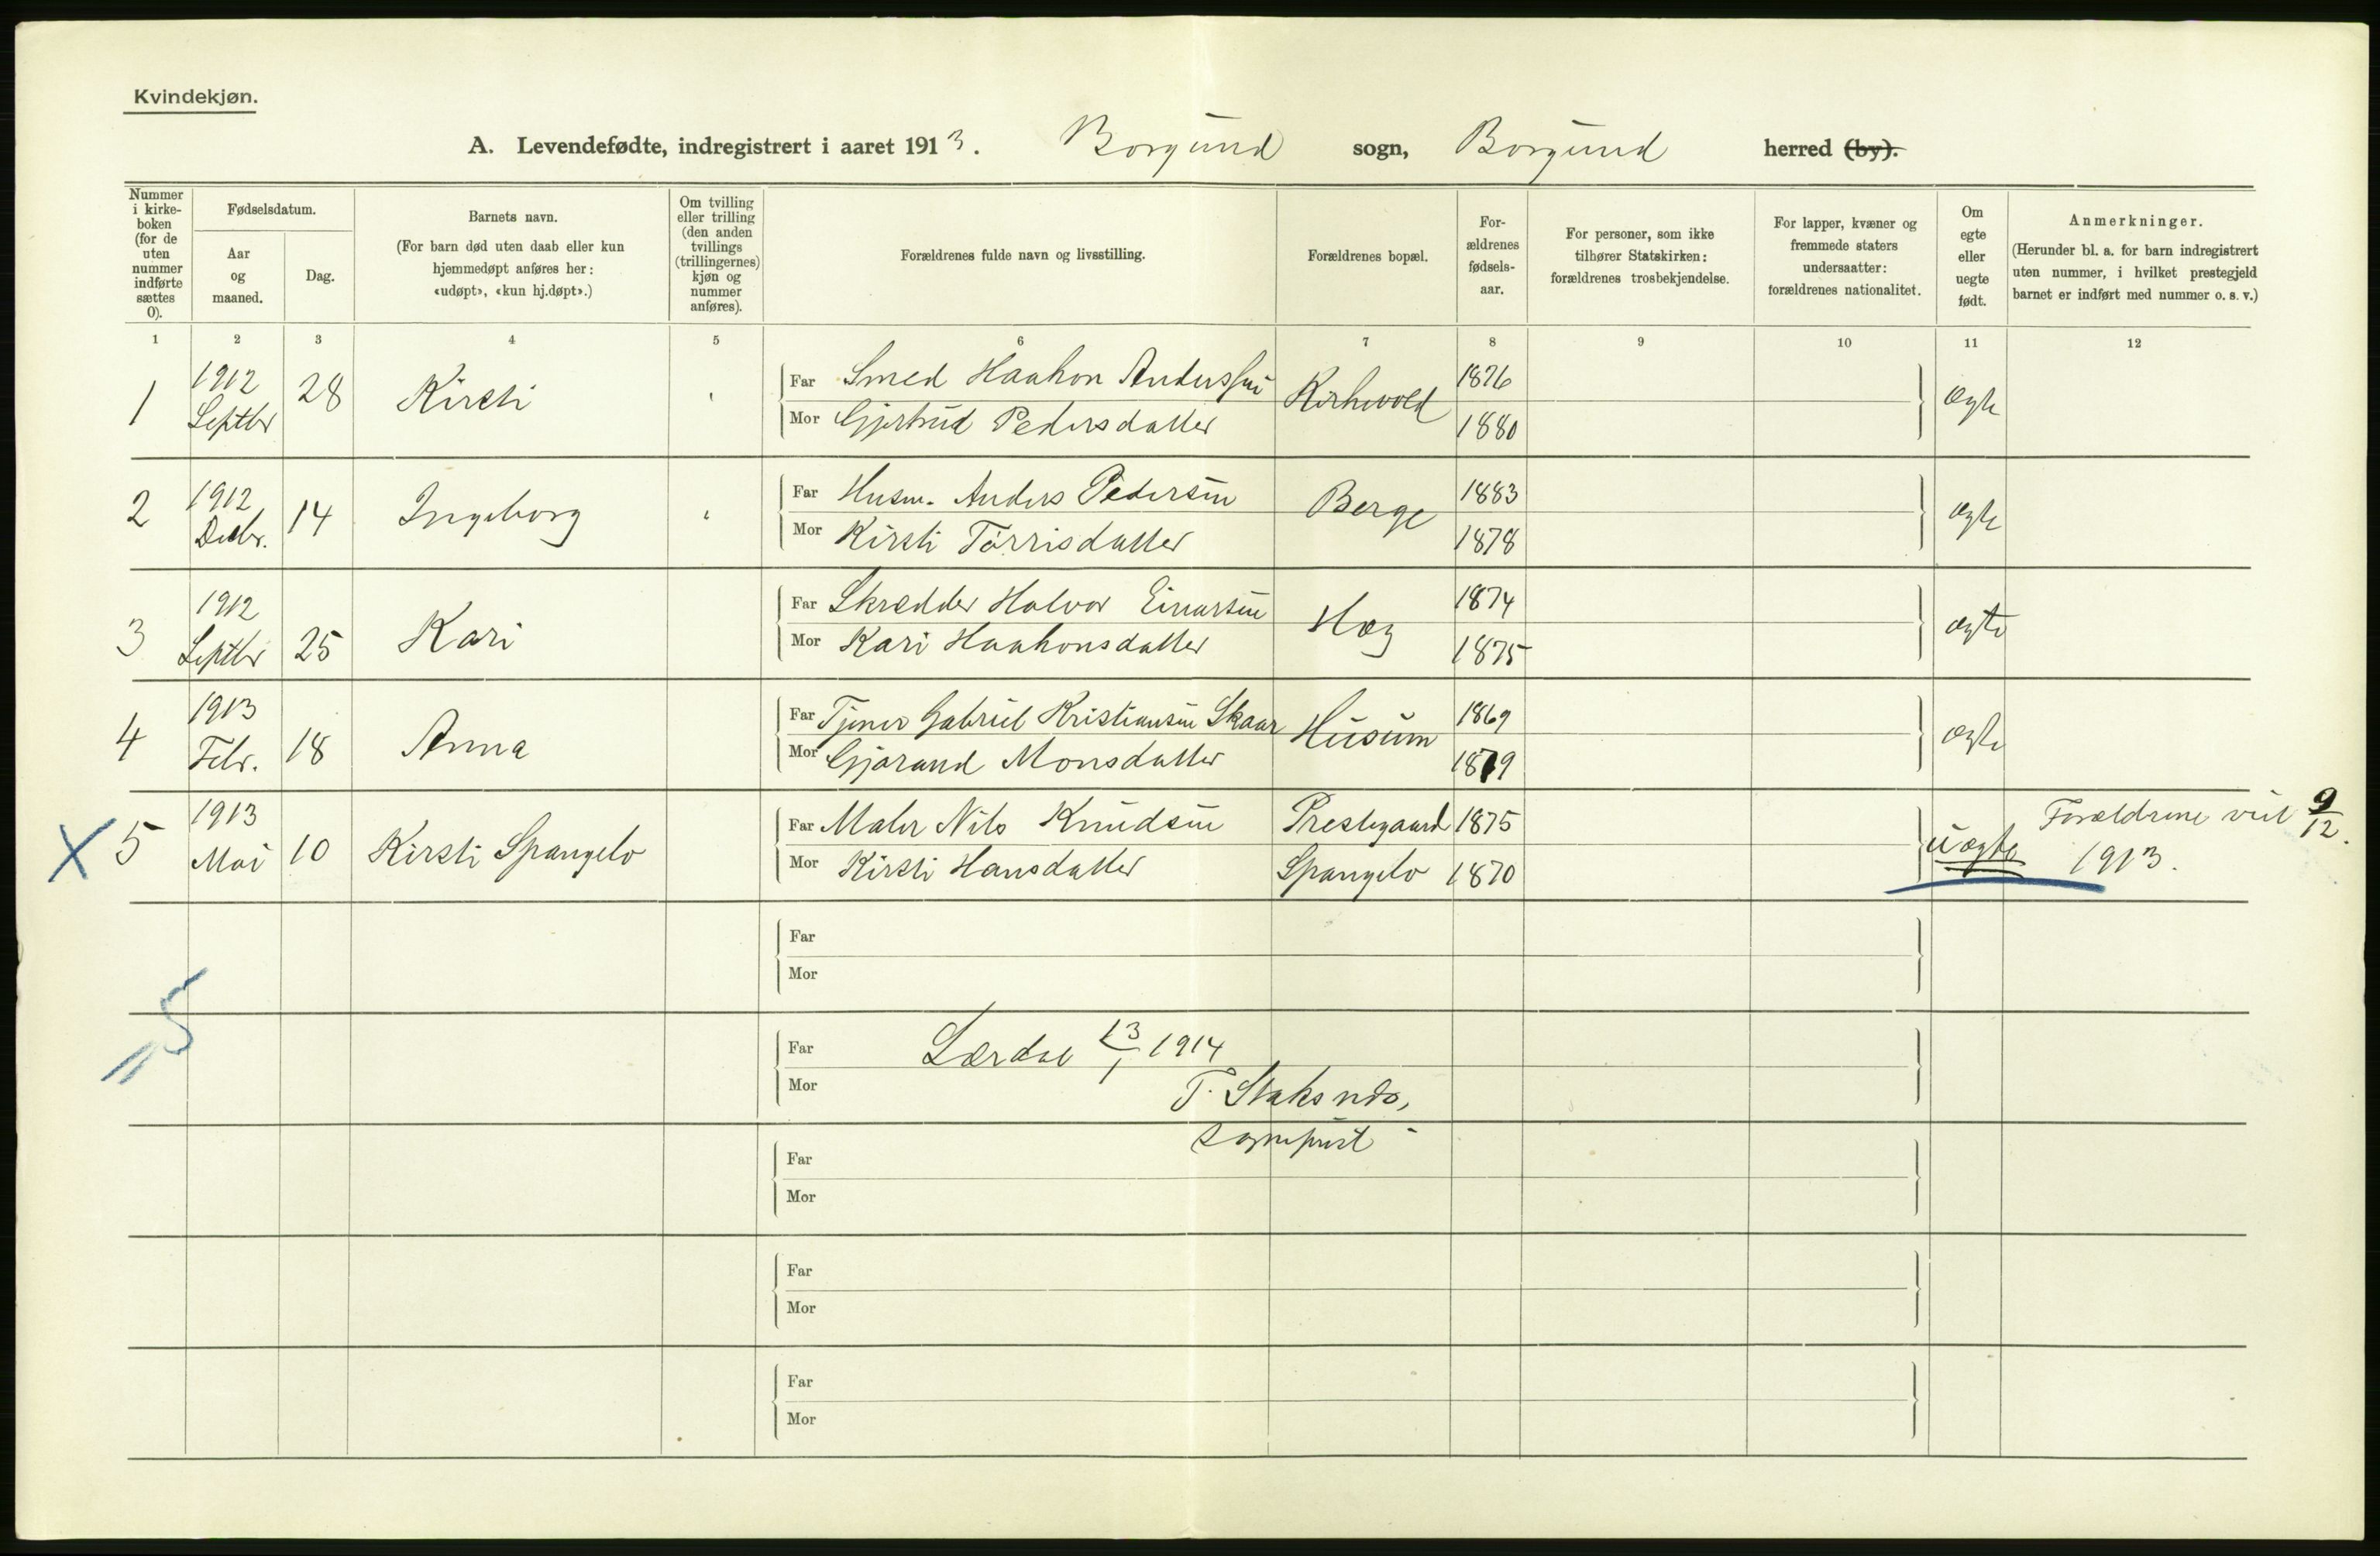 Kvindekjøn.
A. Levendefødte, indregistrert i aaret 1913. Borgund sogn, Borgund herred (by).
Nummer i kirke-boken (for de uten nummer indførte sættes 0).
Fødselsdatum.
Aar og maaned.
Dag.
Barnets navn.
(For barn død uten daab eller kun hjemmedøpt anføres her: «udøpt», «kun hj.døpt».)
Om tvilling eller trilling (den anden tvillings (trillingernes) kjøn og nummer anføres).
Forældrenes fulde navn og livsstilling.
Forældrenes bopæl.
For-ældrenes fødsels-aar.
For personer, som ikke tilhører Statskirken: forældrenes trosbekjendelse.
For lapper, kvæner og fremmede staters undersaatter: forældrenes nationalitet.
Om egte eller uegte født.
Anmerkninger.
(Herunder bl. a. for barn indregistrert uten nummer, i hvilket prestegjeld barnet er indført med nummer o. s. v.)
1 2 3 4 5 6 7 8 9 10 11 12
1 1912 Septbr 28 Kirsti Far Smed Haakon Anderssen Kirkevold 1876 ægte
Mor Gjertrud Pedersdatter 1880
2 1912 Decbr. 14 Ingeborg Far Husm. Anders Pedersen Berge 1883 ægte
Mor Kirsti Tørrisdatter 1878
3 1912 Septbr 25 Kari Far Skrædder Halvor Einarsen Hæg 1874 ægte
Mor Kari Haakonsdatter 1875
4 1913 Febr. 18 Anna Far Tjener Gabriel Kristiansen Skaar Husum 1869 ægte
Mor Gjørand Monsdatter 1879
X 5 1913 Mai 10 Kirsti Spangelo Far Maler Nils Knudsen Prestegaard 1875 uægte Forældrene viet 9/12.
Mor Kirsti Hansdatter Spangelo 1870 1913.
Far
Mor
5
Far Lærdal 13/1 1914
Mor T.
sogneprest
Far
Mor
Far
Mor
Far
Mor